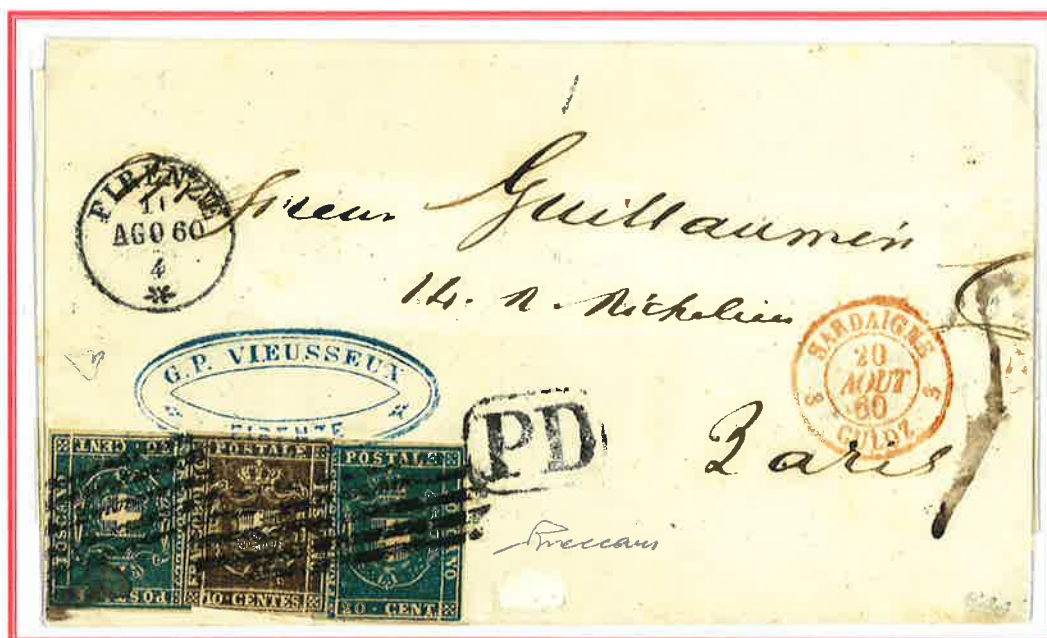 FIRENZE
AGO 60
4
Guillaumin
14. R. Richelieu
SARDAIGNE
20
AOUT
60
CULOZ
G. P. VIEUSSEUX
FIRENZE
PD
Paris
40 CENT
POSTALE
10 - CENTES
POSTALE
40 - CENT